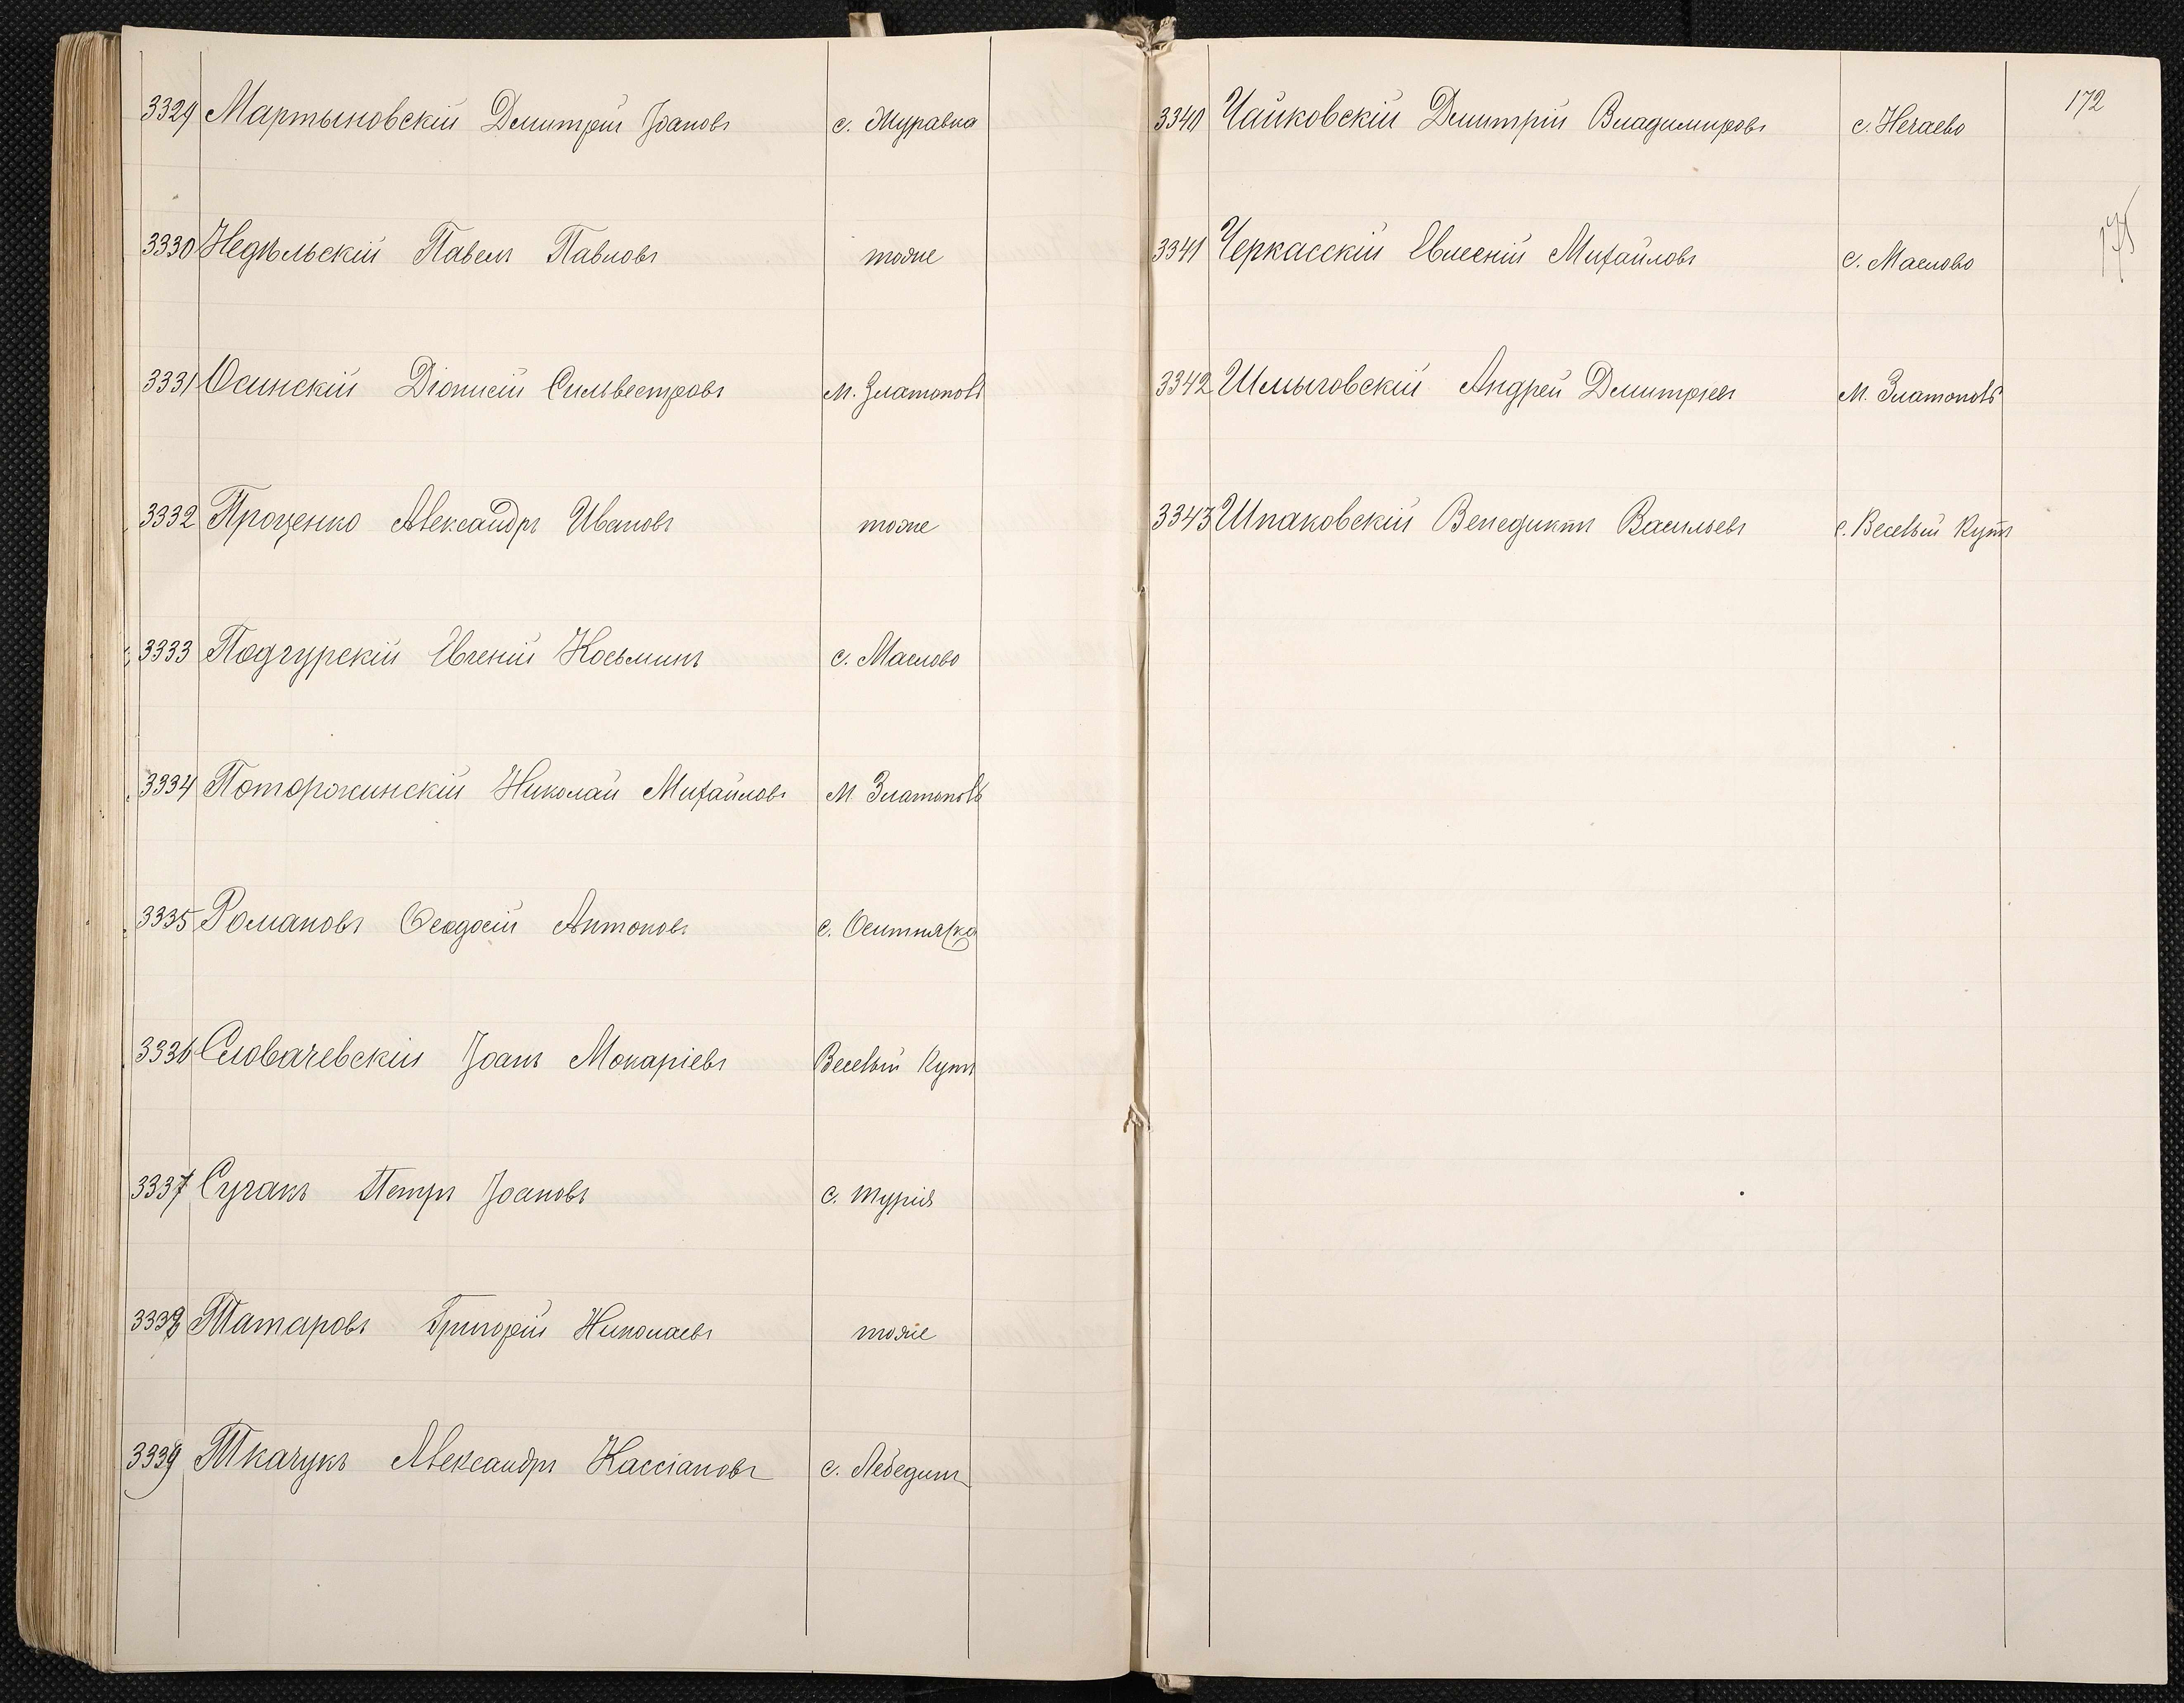 3329 Мартыновскій Дмитрій Іоановъ с. Журавка
3330 Недѣльскій Павелъ Павловъ тоже
3331 Осинскій Діонисій Сильвестровъ м. Златополь
3332 Проценко Александръ Ивановъ тоже
3333 Подгурскій Евгеній Косьминъ с. Маслово
3334 Поторжинскій Николай Михайловъ м. Златополь
3335 Романовъ Ѳеодосій Антоновъ с. Оситняжка
3336 Словачевскій Іоанъ Макаріевъ Веселый Кутъ
3337 Сугакъ Петръ Іоановъ с. Турія
3338 Татаровъ Григорій Николаевъ тоже
3339 Ткачукъ Александръ Кассіановъ с. Лебединъ
172
3340 Чайковскій Дмитрій Владимировъ с. Нечаево
3341 Черкасскій Евгеній Михайловъ с. Маслово
175
3342 Шмыговскій Андрей Дмитріевъ м. Златополь
3343 Шпаковскій Венедиктъ Васильевъ с. Веселый Кутъ